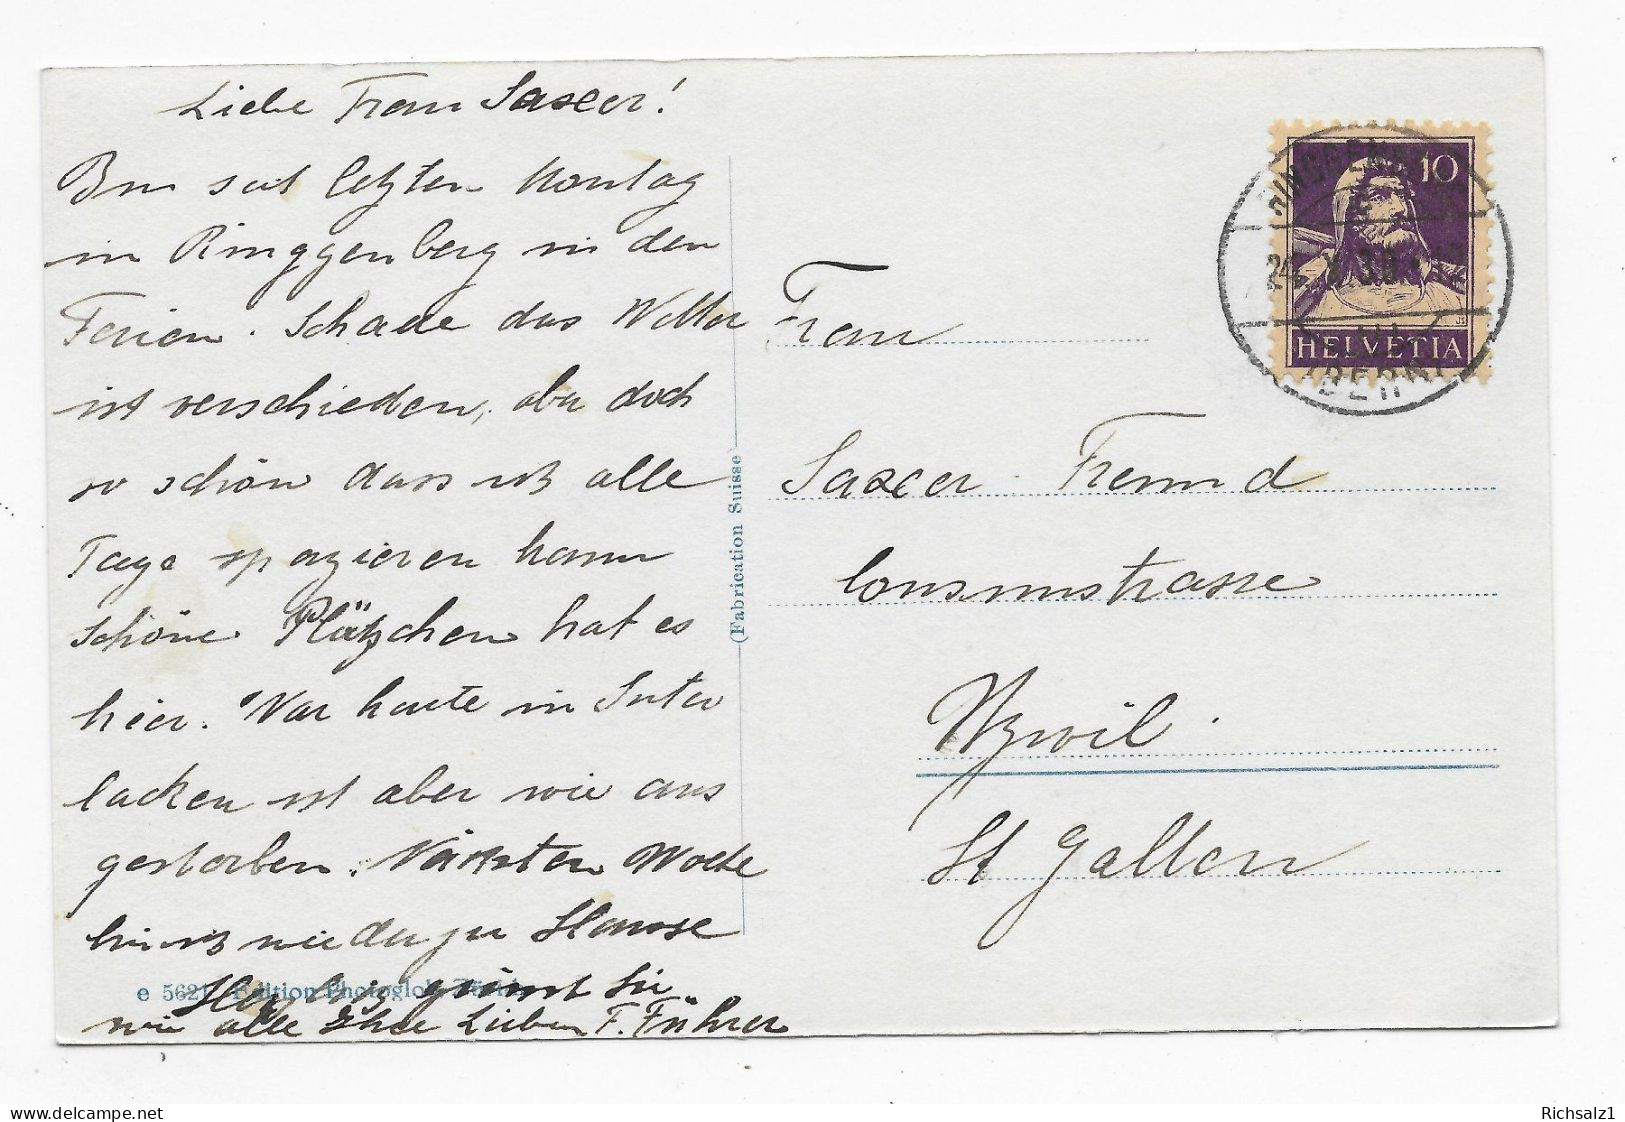 Liebe Frau Saxer!
Bin seit letzten Montag
in Ringgenberg in den
Ferien. Schade das Wetter
ist verschieden, aber doch
so schön dass ich alle
Tage spazieren kann
schöne Plätzchen hat es
hier. War heute in Inter
lacken ist aber wie aus
gestorben. Nächsten Woche
bin ich wieder zu Hause
Herzlich grüsst Sie
wie alle Ihre Lieben F. Führer
e 5621 Edition Photoglob
(Fabrication Suisse)
Frau
Saxer
Consumstrasse
Uzwil.
St Gallen
10
HELVETIA
RINGGENBERG
24. X. 30.
(BERN)
www.delcampe.net
Richsalz1